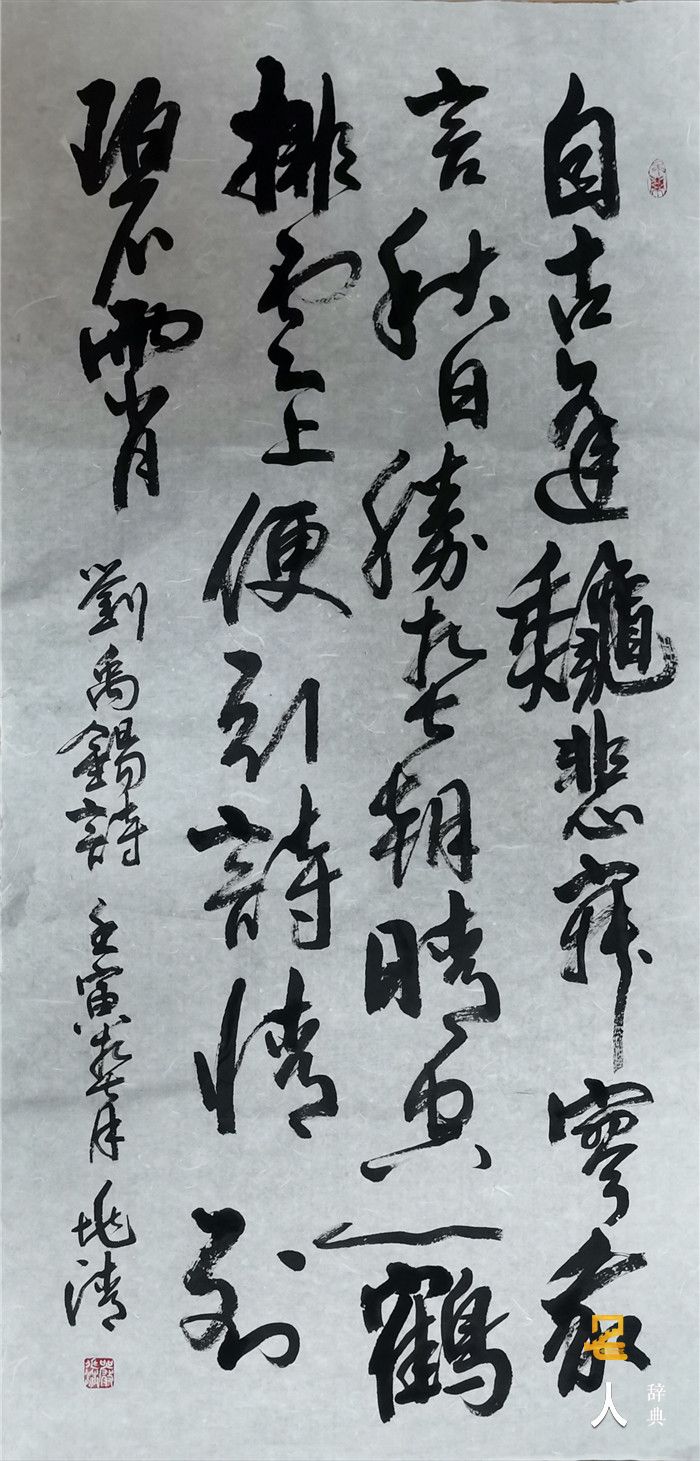 自古逢龝悲寂寥我
言秋日勝春朝晴空一鶴
排雲上便引詩情到
碧霄 劉禹錫詩 壬寅春月 清
名人
辞典